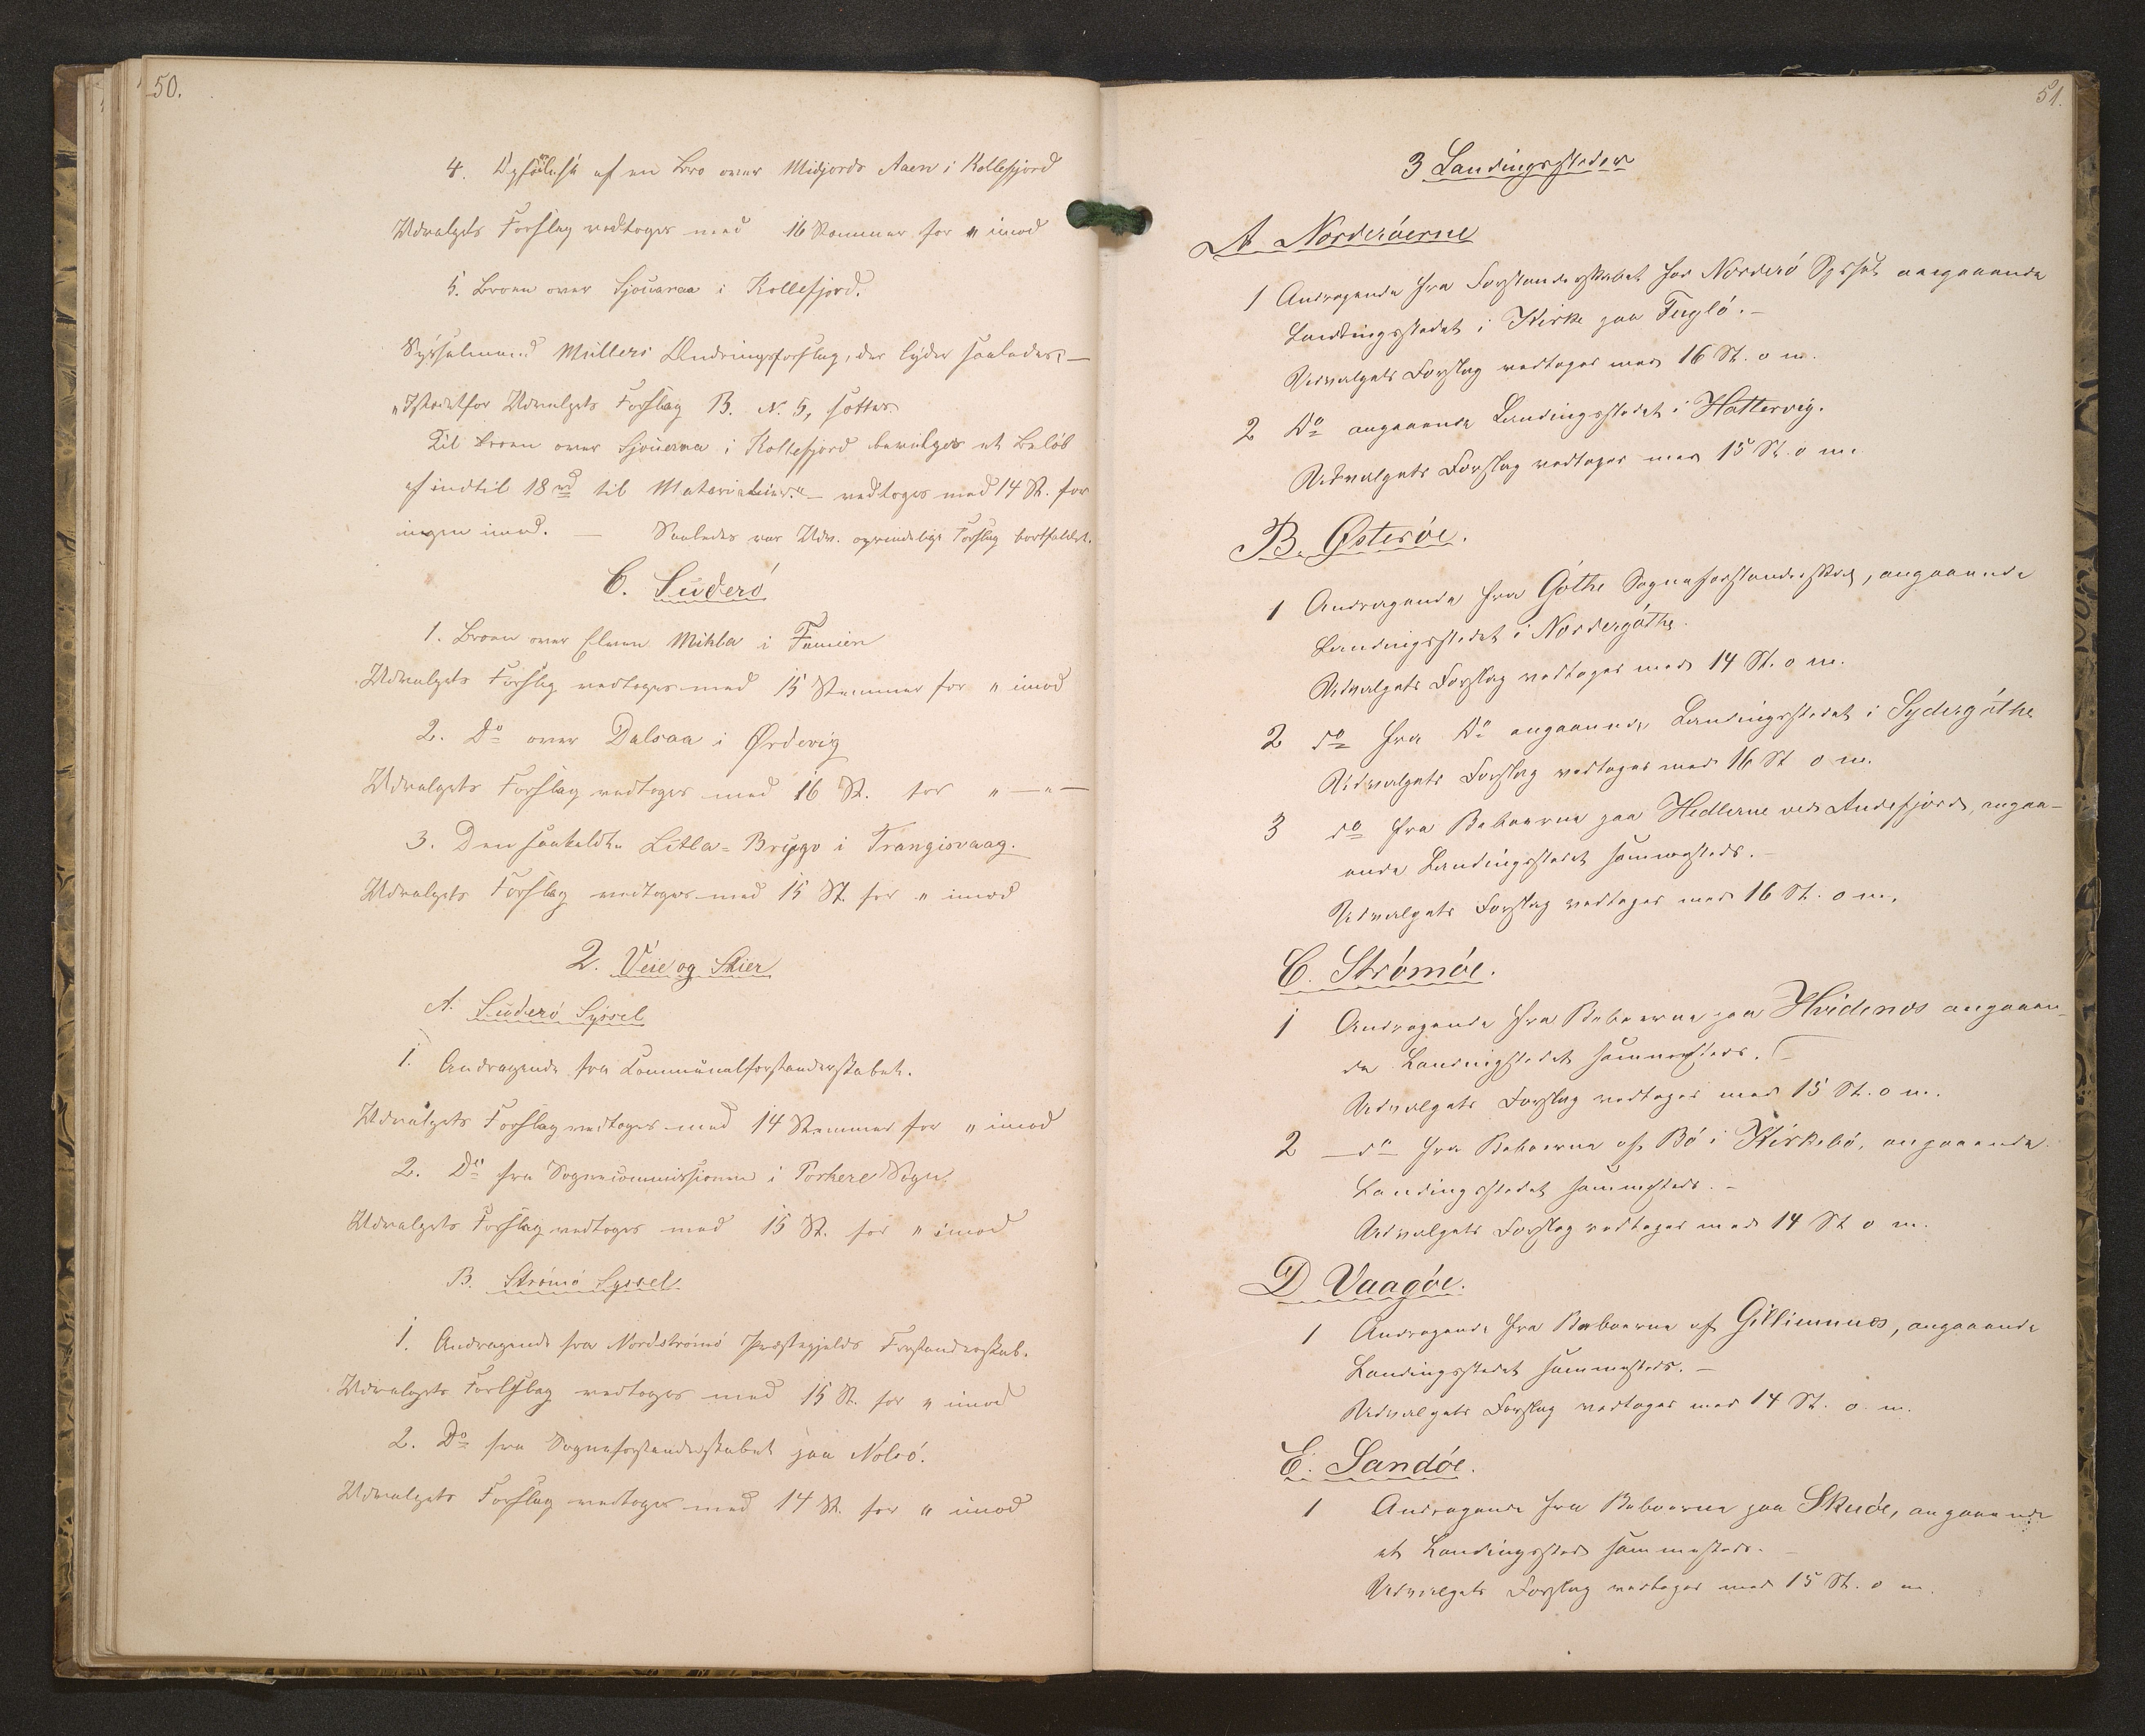 50.
4. Opførelse af en Bro over Midjords Aaen i Kollefjord
Udvalgets Forslag vedtoges med 16 Stemmer for „ imod
5. Broen over Sjouaraa i Kollefjord.
Sysselmand Müllers Ændringsforslag, der lyder saaledes: —
„Istedetfor Udvalgets Forslag B. N. 5, sættes
Til Broen over Sjouaraa i Kollefjord bevilges et Beløb
af indtil 18 rd til Materialier." — vedtoges med 14 St. for
ingen imod. — Saaledes var Udv. oprindelige Forslag bortfaldet.
C. Suderö
1. Broen over Elven Mikba i Famien
Udvalgets Forslag vedtoges med 15 Stemmer for „ imod
2. Do over Dalsaa i Ørdevig
Udvalgets Forslag vedtoges med 16 St. for „ — „ —
3. Den saakaldte Litla-Bryggv i Trangisvaag.
Udvalgets Forslag vedtoges med 15 St. for „ imod
2. Veie og Stier
A. Suderö Syssel
1. Andragende fra Communalforstanderskabet.
Udvalgets Forslag vedtoges med 14 Stemmer for „ imod
2. Do fra Sognecommissionen i Porkere Sogn.
Udvalgets Forslag vedtoges med 15 St. for „ imod
B. Strömö Syssel
1. Andragende fra Nordströmö Præstegjelds Forstanderskab.
Udvalgets Forslag vedtoges med 15 St. for „ imod
2. Do fra Sogneforstanderskabet paa Nolsö.
Udvalgets Forslag vedtoges med 14 St. for „ imod
51.
3 Landingssteder
A Norderöerne
1 Andragende fra Forstanderskabet for Norderö Syssel angaaende
Landingsstedet i Kirke paa Fuglö. —
Udvalgets Forslag vedtoges med 16 St. o m.
2 Do angaaende Landingsstedet i Hattervig.
Udvalgets Forslag vedtoges med 15 St. o m.
B. Østeröe.
1 Andragende fra Göthe Sogneforstanderskab, angaaende
Landingsstedet i Nordergöthe.
Udvalgets Forslag vedtoges med 14 St. o m.
2 do fra Do angaaende Landingsstedet i Sydergöthe
Udvalgets Forslag vedtoges med 16 St o m.
3 do fra Beboerne paa Hedlerne ved Andefjord, angaa-
ende Landingsstedet sammesteds. —
Udvalgets Forslag vedtoges med 16 St. o m.
C. Strömöe.
1 Andragende fra Beboerne paa Hvidenæs angaaen-
de Landingstedet sammesteds. —
Udvalgets Forslag vedtoges med 15 St. o m.
2 do fra Beboerne af Bö i Kirkebö, angaaende
Landingsstedet sammesteds. —
Udvalgets Forslag vedtoges med 14 St o m.
D Vaagöe.
1 Andragende fra Beboerne af Gillimnæs, angaaende
Landingsstedet sammesteds. —
Udvalgets Forslag vedtoges med 14 St. o m.
E. Sandöe.
1 Andragende fra Beboerne paa Skuöe, angaaende
et Landingssted sammesteds. —
Udvalgets Forslag vedtoges med 15 St. o m.